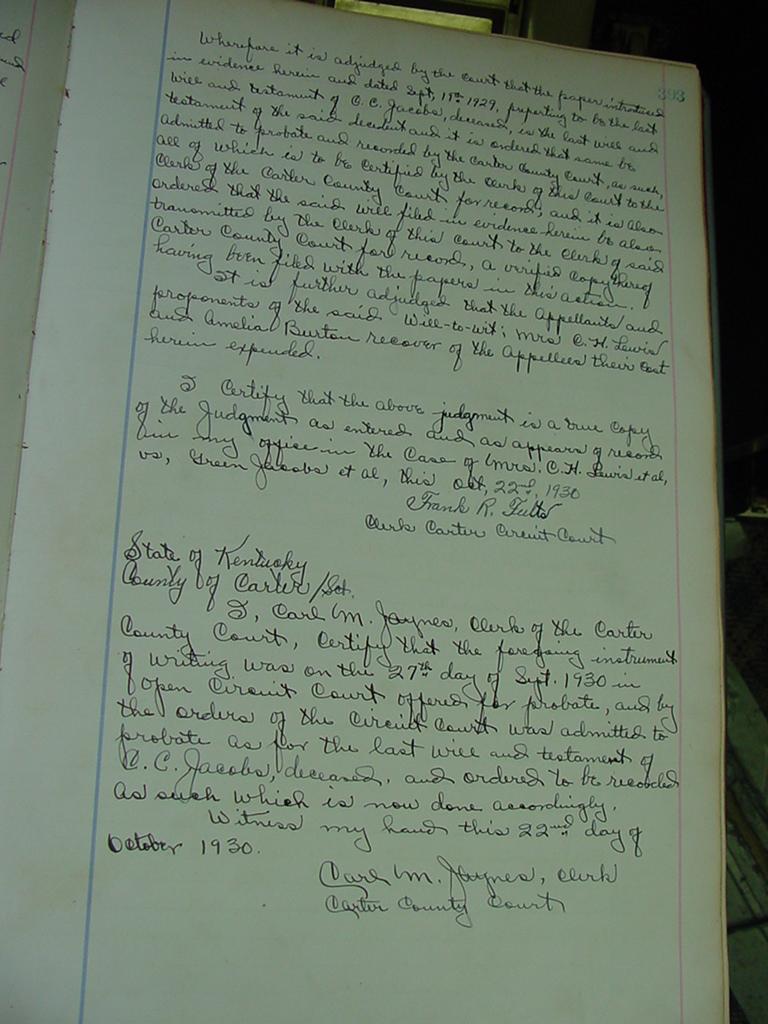 393
Wherefore it is adjudged by the court that the paper introduced
in evidence herein and dated Sept, 11th 1929, purporting to be the last
will and testament of C. C. Jacobs, deceased, is the last will and
testament of the said decedent and it is ordered that same be
admitted to probate and recorded by the Carter County Court, as such,
all of which is to be certified by the Clerk of this Court to the
Clerk of the Carter County Court for record, and it is also
ordered that the said will filed in evidence herein be also
transmitted by the Clerk of this court to the Clerk of said
Carter County Court for record, a verified copy thereof
having been filed with the papers in this action.
It is further adjudged that the Appellants and
proponents of the said Will-to-wit; Mrs C. H. Lewis
and Amelia Burton recover of the Appellees their cost
herein expended.
I Certify that the above judgment is a true copy
of the Judgment as entered and as appears of record
in my office in the Case of Mrs. C. H. Lewis et al,
vs, Green Jacobs et al, this Oct, 22nd, 1930
Frank R. Fults
Clerk Carter Circuit Court
State of Kentucky
County of Carter/Sct.
I, Carl M. Jaynes, Clerk of the Carter
County Court, Certify that the foregoing instrument
of writing was on the 27th day of Sept. 1930 in
open Circuit Court offered for probate, and by
the orders of the Circuit Court was admitted to
probate as for the last will and testament of
C. C. Jacobs, deceased, and ordered to be recorded
as such which is now done accordingly.
Witness my hand this 22nd day of
October 1930.
Carl M. Jaynes, Clerk
Carter County Court